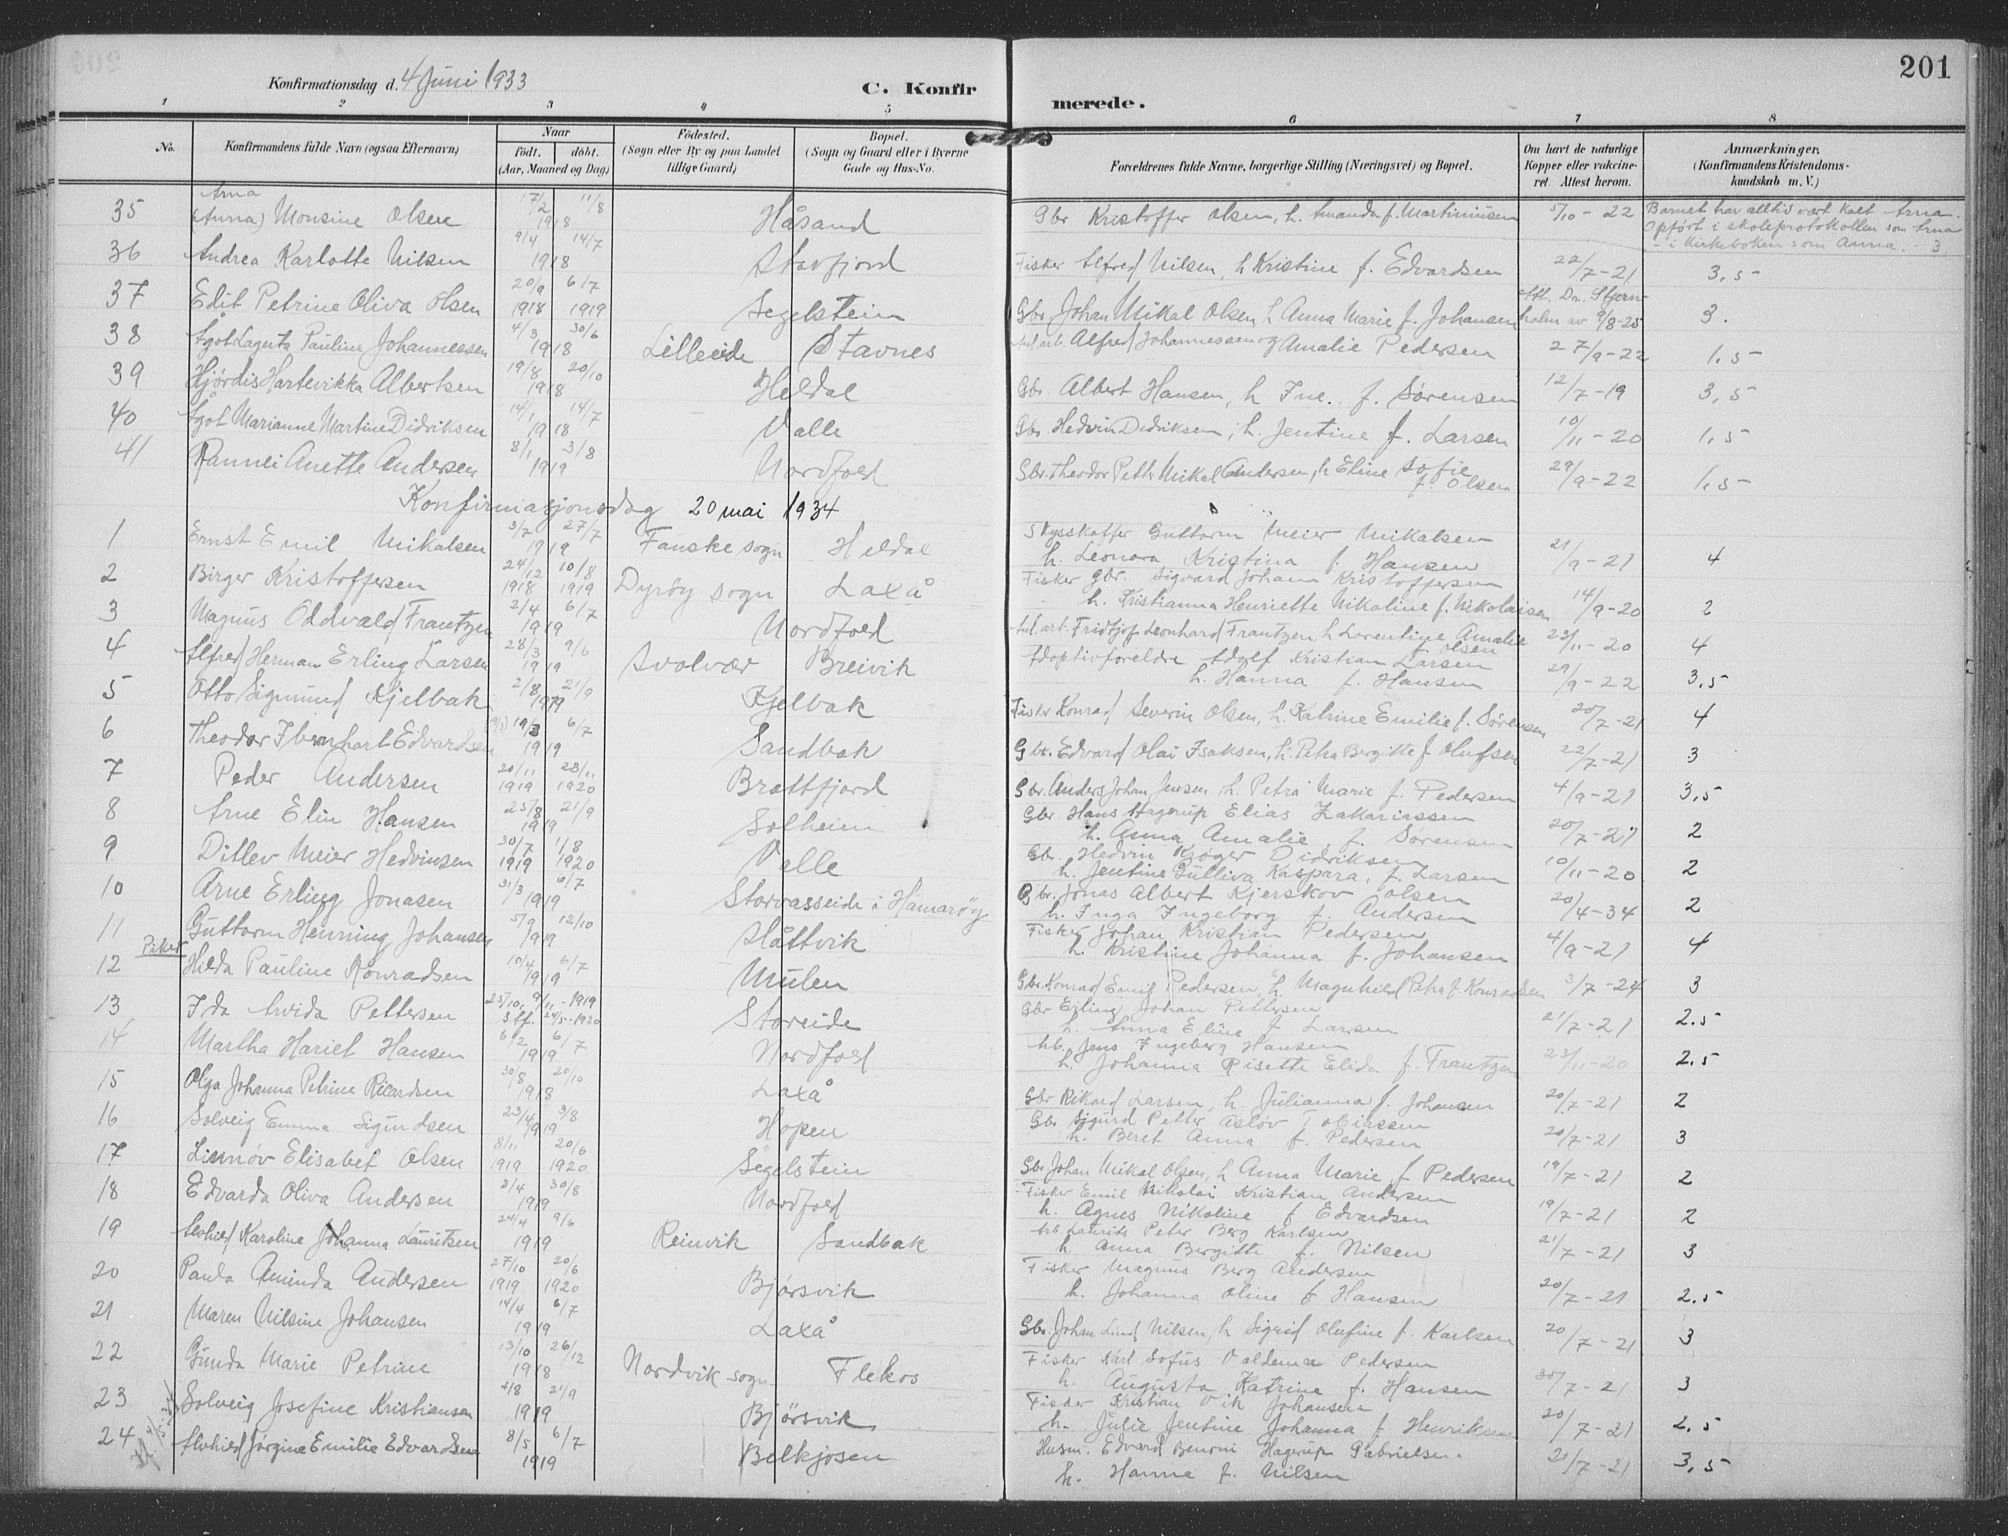 Konfirmationsdag d. 4 Juni 1933
C. Konfir merede. 201
1 2 3 4 5 6 7 8
No. Konfirmandens fulde Navn (ogsaa Efternavn) Naar födt. döbt. (Aar, Maaned og Dag) Födested. (Sogn eller By og paa Landet tillige Gaard) Bopæl. (Sogn og Gaard eller i Byerne Gade og Hus-No. Forældrenes fulde Navne, borgerlige Stilling (Næringsvei) og Bopæl. Om havt de naturlige Kopper eller vakcineret. Attest herom. Anmærkninger. (Konfirmandens Kristendomskundskab m. V.)
35 Arna (Anna) Monsine Olsen 17/2 11/8 1918 Håsand Gbr Kristoffer Olsen, h. Amanda f. Martinussen 5/10-22 Barnet har alltid vært kalt Arna. Opført i skoleprotokollen som Arna - i kirkeboken som Anna. - 3
36 Andrea Karlotte Nilsen 9/4 14/7 1918 Stavfjord Fisker Alfred Nilsen, h Kristine f. Edvardsen 22/7-21 3,5
37 Edit Petrine Oliva Olsen 20/9 1918 6/7 1919 Segelstein Gbr. Johan Mikal Olsen h Anna Marie f. Johansen Att. Dr. Stjernholm av 9/8-25 3.
38 Ågot Lagerta Pauline Johannessen 4/3 30/6 1918 Lilleeide Stavnes Alfred Johannessen og Amalie Pedersen 27/9-22 1,5
39 Hjørdis Hartevikka Albertsen 19/8 20/10 1918 Heldal Gbr. Albert Hansen, h Ine. f. Sørensen 12/7-19 3,5
40 Ågot Marianne Martine Didriksen 14/1 14/7 1918 Valle Gbr. Hedvin Dedriksen, h. Jentine f. Larsen 10/11-20 1,5
41 Rannei Anette Andersen 8/1 3/8 1919 Nordfold Gbr. Theodor Peth Mikal Andersen, h Eline Sofie f. Olsen 29/9-22 1,5
Konfirmasjonsdag 20 mai 1934
1 Ernst Emil Mikalsen 3/7 27/7 1919 Fauske sogn Heldal Skysskaffer Guttorm Meier Mikalsen h. Leonora Kristina f. Hansen 21/9-21 4
2 Birger Kristoffersen 24/12 1918 10/8 1919 Dyrøy sogn Laxå Fisker gbr. Sigvard Johann Kristoffersen h. Kristianna Henriette Nikoline f. Nikolaisen 14/9-20 2
3 Magnus Oddvald Frantzen 2/4 6/7 1919 Nordfold Fridtjof Leonhard Frantzen h Lorentine Amalie f. Olsen 23/11-20 4
4 Alfred Herman Erling Larsen 28/3 9/6 1919 Svolvær Breivik Adoptivforeldre Adolf Kristian Larsen h. Hanna f. Hansen 29/9-22 3,5
5 Otto Sigmund Kjelbak 2/8 21/9 1919 Kjelbak Fisker Konrad Severin Olsen, h. Katrine Emilie f. Sørensen 20/7-21 4
6 Theodor Ibenhart Edvardsen 19/3 6/7 1919 Sandbak Gbr. Edvard Olai Isaksen, h. Petra Bergitte f Olufsen 22/7-21 3
7 Peder Andersen 20/11 1919 28/11 1920 Brattfjord Gbr. Anders Johan Jensen h. Petra Marie f. Pedersen 4/9-21 3,5
8 Arne Elin Hansen 25/8 21/9 1919 Solheim Gbr. Hans Hagerup Elias Zakariassen h. Anna Amalie f. Sørensen 20/7-21 2
9 Ditlev Meier Hedvinsen 30/7 1919 1/8 1920 Valle Gbr. Hedvin Krøger Didriksen h. Jentine Gulliva Kaspara, f. Larsen 10/11-20 2
10 Arne Erling Jonasen 31/3 6/7 1919 Storvasseide i Hamarøy Gbr. Jonas Albert Kjerskov Olsen h. Inga Ingeborg f. Andersen 20/4-34 2
11 Guttorm Henning Johansen 5/9 12/10 1919 Håttvik Fisker Johan Kristian Pedersen h. Kristine Johanna f. Johansen 4/9-21 4
Piker
12 Hilda Pauline Konradsen 10/4 6/7 1919 Mulen Gbr. Konrad Emil Pedersen, h. Magnhild Petra f. Konradsen 3/7-24 3
13 Ida Arvida Pettersen 25/10, 9/11-1919 Stf. 24/5-1920 Storeide Gbr Erling Johan Pettersen h. Anna Eline f Larsen 21/7-21 2.5
14 Martha Hariet Hansen 6/2 6/7 1919 Nordfold Jens Ingeberg Hansen h. Johanna Risette Elida f. Frantzen 23/11-20 2.5
15 Olga Johanna Petrine Ricardsen 30/8 20/10 1918 Laxå Gbr Rikard Larsen, h. Julianna f. Johansen 20/7-21 2
16 Solveig Emma Sigurdsen 23/4 3/8 1919 Hopen Gbr Sigurd Petter Asløv Tobiassen h. Beret Anna f. Pedersen 20/7-21 3
17 Linnøv Elisabet Olsen 8/11 1919 20/6 1920 Segelstein Gbr Johan Mikal Olsen, h Anna Marie f Pedersen 19/7-21 2
18 Edvarda Oliva Andersen 2/4 30/8 1919 Nordfold Fisker Emil Nikolai Kristian Andersen h. Agnes Nikoline f Edvardsen 19/7-21 2
19 Alvhild Karoline Johanna Lauritsen 24/4 9/6 1919 Reinvik Sandbak Arb. Laurits Peter Berg Karlsen h Anna Bergitte f. Nilsen 21/7-21 3
20 Paula Aminda Andersen 27/10 1919 20/6 1920 Bjørsvik Fisker Magnus Berg Andersen h. Johanna Oline f Hansen 20/7-21 2.5
21 Maren Nilsine Johansen 14/4 6/7 1919 Laxå Gbr. Johan Lind Nilsen, h Sigrid Olufine f. Karlsen 20/7-21 3
22 Gunda Marie Petrine 13/10 26/12 1918 Nordvik sogn Flekos Fisker Karl Sofus Valdemar Pedersen h. Augusta Katrine f. Hansen 30/7-21 3
23 Solveig Josefine Kristiansen 4/8 21/9 1919 Bjørsvik Fisker Kristian Vik Johansen h. Julie Jentine Johanna f Henriksen 20/7-21 2.5
24 Alvhild Jørgine Emilie Edvardsen 8/5 6/7 1919 Belkjosen Husm. Edvard Benoni Hagerup Gabrielsen. h. Hanna f. Nilsen 20/7-21 3,5